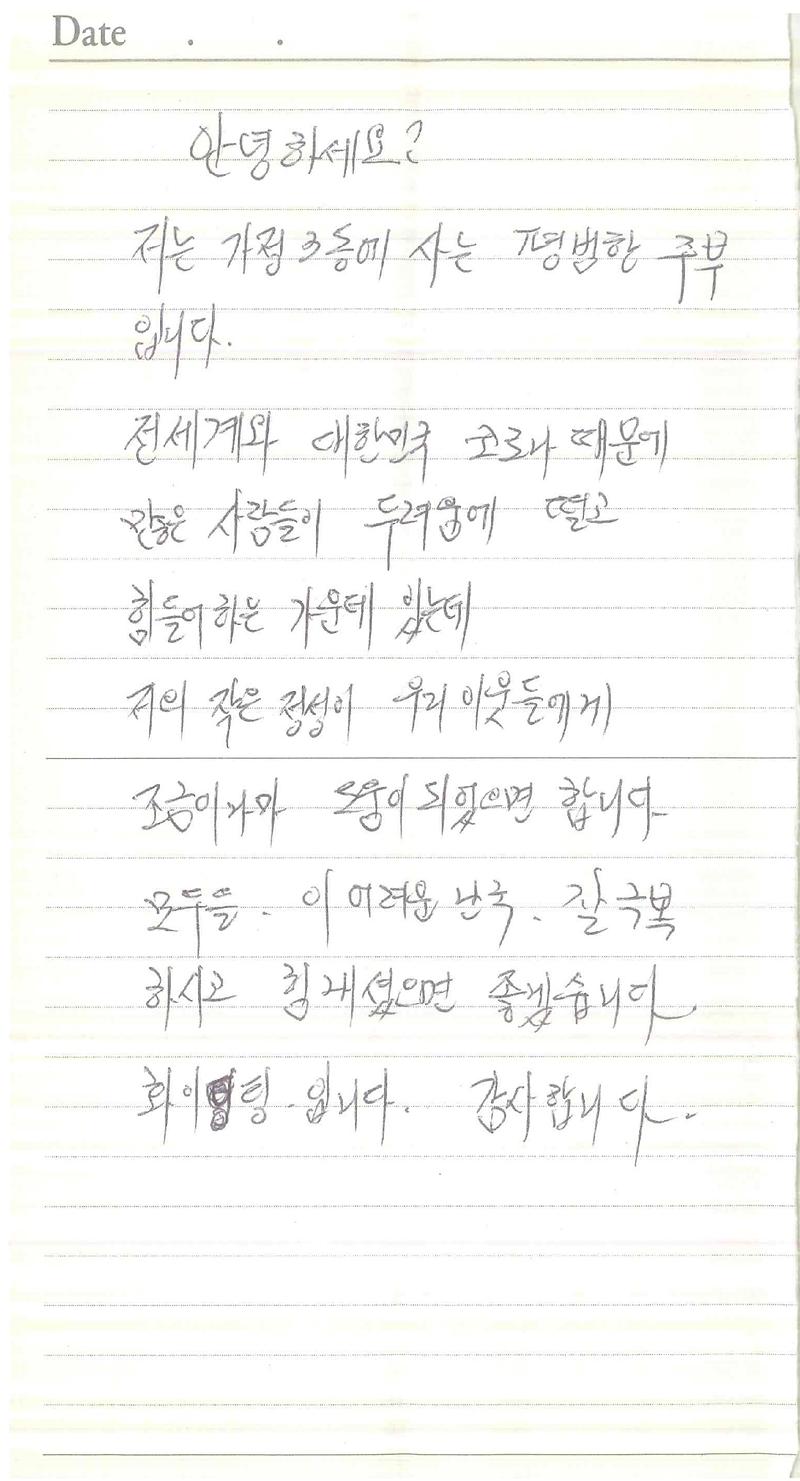 Date . .
안녕하세요?
저는 가정3동에 사는 평범한 주부
입니다.
전세계와 대한민국 코로나 때문에
많은 사람들이 두려움에 떨고
힘들어하은 가운데 있는데
저의 작은 정성이 우리 이웃들에게
조금이나마 도움이 되었으면 합니다
모두들. 이 어려운 난국. 잘 극복
하시고 힘내셨으면 좋겠습니다
화이팅. 입니다. 감사합니다.